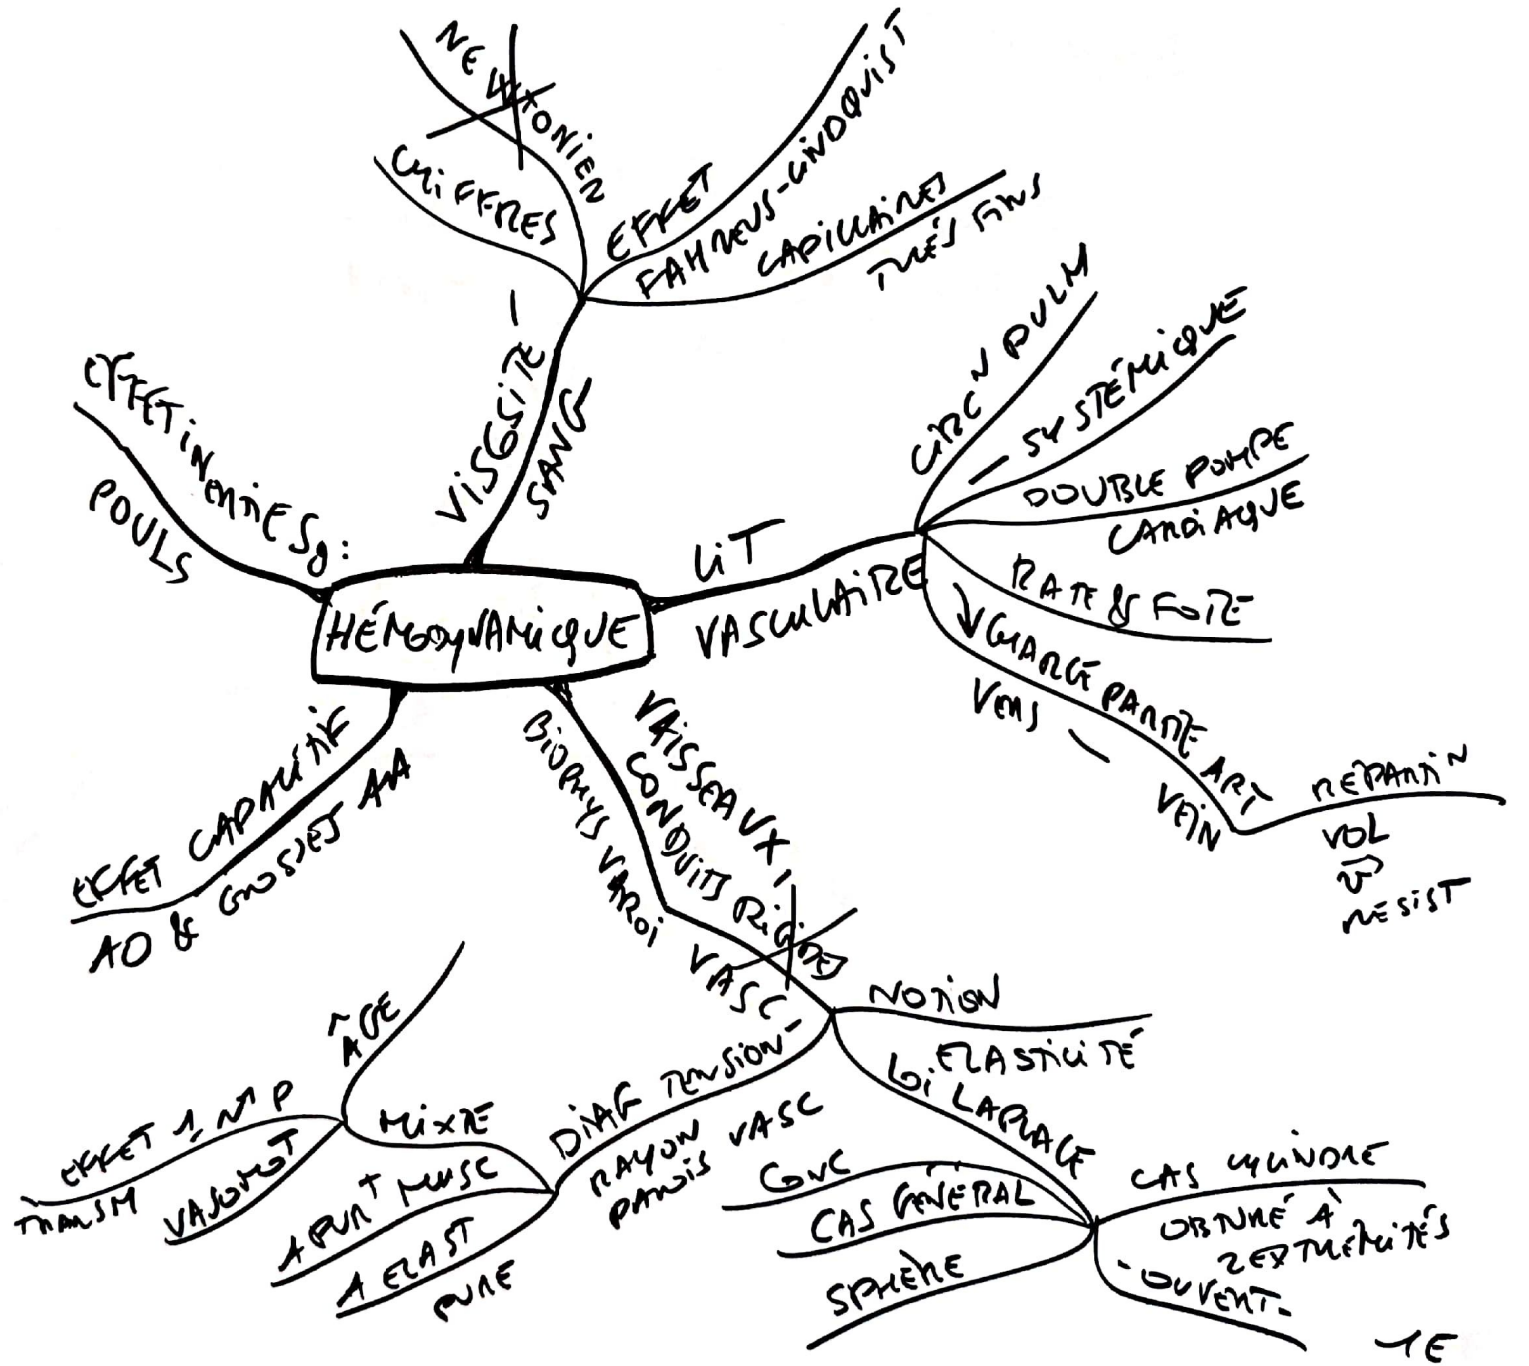 HÉMODYNAMIQUE
VISCOSITÉ -
SANG
CHIFFRES
NEWTONIEN
EFFET
FAHREUS-LINDQUIST
CAPILLAIRES
TRÉS FINS
LIT
VASCULAIRE
CIRC N PULM
- SYSTÉMIQUE
DOUBLE POMPE
CARDIAQUE
RATE & FOIE
↓ CHARGE PARTIE ART
VERS - VEIN
REPARTIN
VOL
RESIST
VAISSEAUX,
CONDUITS RIGIDES
BIOPHYS PAROI
VASC -
NOTION
ELASTICITÉ
LOI LAPLACE
CAS CYLINDRE
OBTURÉ À
2 EXTREMITÉS
- OUVERT -
CONC
CAS GÉNÉRAL
SPHÈRE
DIAG TENSION
RAYON VASC
PAROIS
MIXTE
ÂGE
EFFET P
TRANSM
VASOMOT
A PUR T MUSC
A ELAST
PURE
EFFET CAPACITIF
AO & GROSSES AA
EFFET INERTIE Sg:
POULS
1E